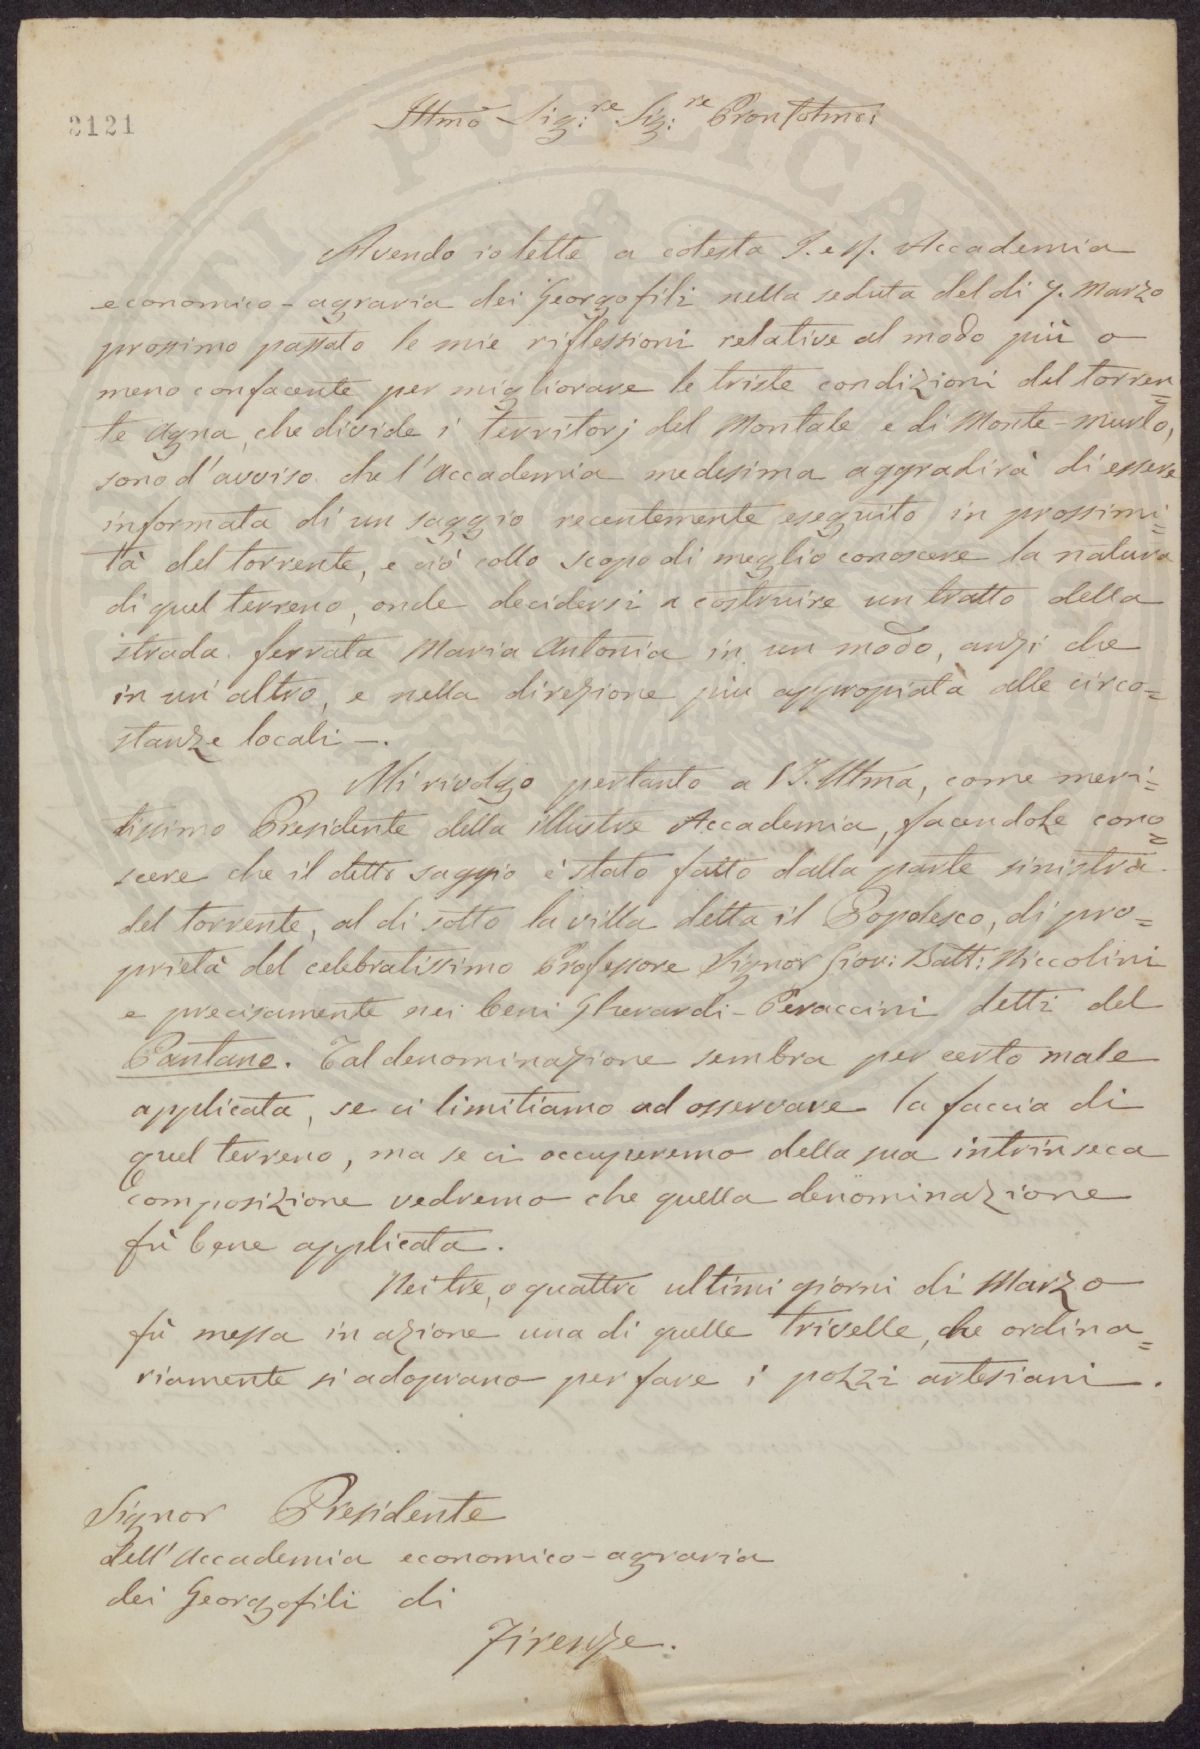 2121
Illmo Sig:re Sig:re Pron Colmo:
Avendo io letto a cotesta I. e R. Accademia
economico-agraria dei Georgofili nella seduta del dì 7. Marzo
prossimo passato le mie riflessioni relative al modo più o
meno confacente per migliorare le triste condizioni del torren=
te Agna, che divide i territorj del Montale e di Monte-Murlo,
sono d'avviso che l'Accademia medesima aggradirà di essere
informata di un saggio recentemente eseguito in prossimi=
tà del torrente, e ciò collo scopo di meglio conoscere la natura
di quel terreno, onde decidersi a costruire un tratto della
strada ferrata Maria Antonia in un modo, anzi che
in un'altro, e nella direzione più appropiata alle circo=
stanze locali —.
Mi rivolgo pertanto a V.S. Illma, come meri=
tissimo Presidente della illustre Accademia, facendole cono=
scere che il detto saggio è stato fatto dalla parte sinistra
del torrente, al di sotto la villa detta il Popolesco, di pro=
prietà del celebratissimo Professore Signor Giov: Batt: Niccolini
e precisamente nei beni Gherardi-Peraccini detti del
Pantano. Tal denominazione sembra per certo male
applicata, se ci limitiamo ad osservare la faccia di
quel terreno, ma se ci occuperemo della sua intrinseca
composizione vedremo che quella denominazione
fù bene applicata.
Nei tre, o quattro ultimi giorni di Marzo
fù messa in azione una di quelle trivelle, che ordina=
riamente si adoprano per fare i pozzi artesiani.
Signor Presidente
dell'Accademia economico-agraria
dei Georgofili di
Firenze.